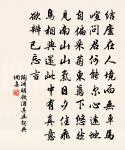 結廬在人境而無車馬
喧問君何能爾心遠地
自偏採菊東籬下悠然
見南山山氣日夕佳飛
鳥相與還此中有真意
欲辨已忘言
陶淵明飲酒其五